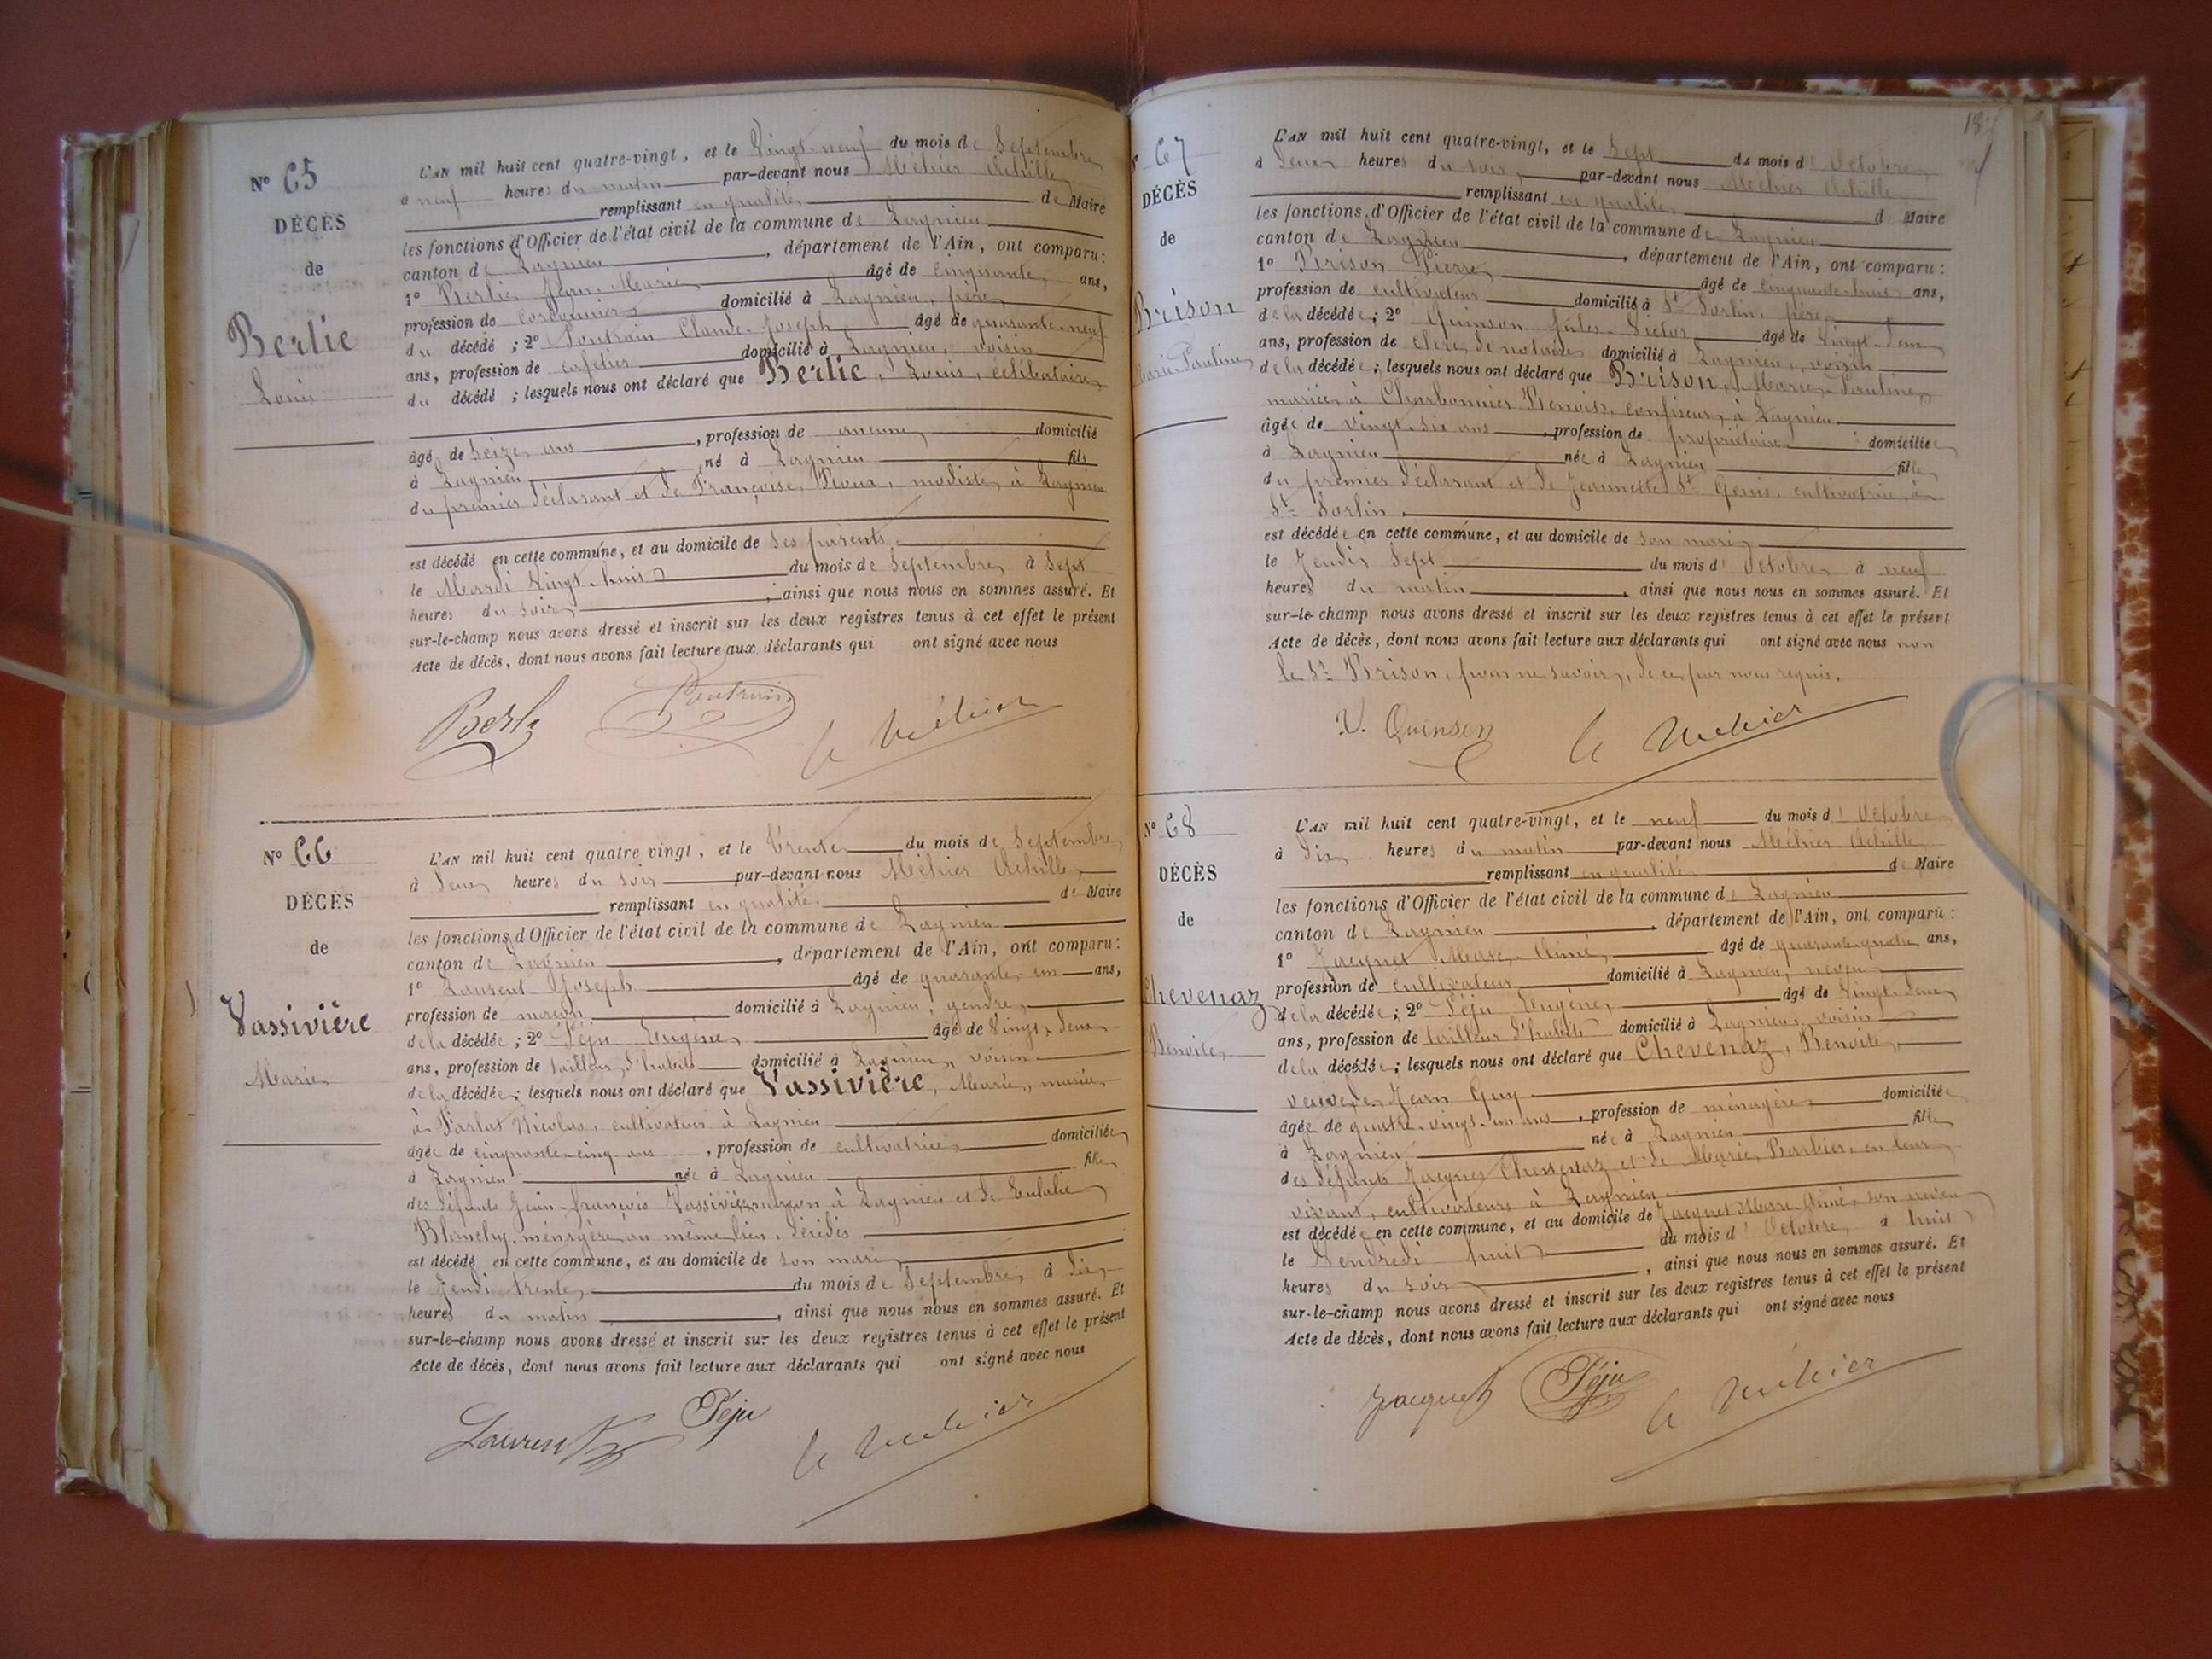 N° 65
DÉCÈS
de
Berlie
Louis
L'AN mil huit cent quatre-vingt, et le Vingt-neuf du mois de Septembre
à neuf heures du matin par-devant nous Méhier Achille
remplissant en qualité de Maire
les fonctions d'Officier de l'état civil de la commune de Lagnieu
canton de Lagnieu, département de l'Ain, ont comparu:
1° Berlie Jean-Marie âgé de cinquante ans,
profession de cordonnier domicilié à Lagnieu, père
du décédé ; 2° Poutrain Claude-Joseph âgé de quarante-neuf
ans, profession de cafetier domicilié à Lagnieu, voisin
du décédé ; lesquels nous ont déclaré que Berlie, Louis, célibataire,
âgé de seize ans, profession de aucune domicilié
à Lagnieu, né à Lagnieu fils
du premier déclarant et de Françoise, modiste, à Lagnieu
est décédé en cette commune, et au domicile de ses parents.
le Mardi Vingt-huit du mois de Septembre à Sept
heures du soir ; ainsi que nous nous en sommes assuré. Et
sur-le-champ nous avons dressé et inscrit sur les deux registres tenus à cet effet le présent
Acte de décès, dont nous avons fait lecture aux déclarants qui ont signé avec nous
Berlie Poutrain A Méhier
N° 66
DÉCÈS
de
Vassivière
Marie
L'AN mil huit cent quatre vingt, et le Trente du mois de Septembre
à deux heures du soir par-devant nous Méhier Achille
remplissant en qualité de Maire
les fonctions d'Officier de l'état civil de la commune de Lagnieu
canton de Lagnieu, département de l'Ain, ont comparu:
1° Laurent Joseph âgé de quarante-un ans,
profession de maçon domicilié à Lagnieu, gendre
de la décédée ; 2° Péju Eugène âgé de Vingt-deux
ans, profession de tailleur d'habits domicilié à Lagnieu, voisin
de la décédée ; lesquels nous ont déclaré que Vassivière, Marie, mariée
à Nicolas, cultivateur à Lagnieu
âgée de cinquante-cinq ans, profession de cultivatrice domiciliée
à Lagnieu née à Lagnieu fille
des défunts Jean-François Vassivière maçon à Lagnieu et de Eulalie
ménagère au même lieu, décédés
est décédé en cette commune, et au domicile de son mari
le Jeudi trente du mois de Septembre à dix
heures du matin, ainsi que nous nous en sommes assuré. Et
sur-le-champ nous avons dressé et inscrit sur les deux registres tenus à cet effet le présent
Acte de décès, dont nous avons fait lecture aux déclarants qui ont signé avec nous
Laurent Péju A Méhier
N° 67
DÉCÈS
de
Brison
Marie-Pauline
L'AN mil huit cent quatre-vingt, et le Sept du mois d'Octobre
à deux heures du soir, par-devant nous Méhier Achille
remplissant en qualité de Maire
les fonctions d'Officier de l'état civil de la commune de Lagnieu
canton de Lagnieu, département de l'Ain, ont comparu:
1° Brison Pierre âgé de cinquante-huit ans,
profession de cultivateur domicilié à St Sorlin, père
de la décédée ; 2° Quinson Jules-Victor âgé de Vingt-deux
ans, profession de clerc de notaire domicilié à Lagnieu, voisin
de la décédée ; lesquels nous ont déclaré que Brison, Marie-Pauline,
mariée à Charbonnier Benoît, confiseur, à Lagnieu
âgée de vingt-six ans, profession de propriétaire domiciliée
à Lagnieu née à Lagnieu fille
du premier déclarant et de Jeannette St Genis, cultivatrice à
St Sorlin.
est décédée en cette commune, et au domicile de son mari
le Jeudi Sept du mois d'Octobre à neuf
heures du matin, ainsi que nous nous en sommes assuré. Et
sur-le-champ nous avons dressé et inscrit sur les deux registres tenus à cet effet le présent
Acte de décès, dont nous avons fait lecture aux déclarants qui ont signé avec nous non
le Sr Brison, pour ne savoir, de ce par nous requis.
V. Quinson A Méhier
N° 68
DÉCÈS
de
Chevenaz
Benoite
L'AN mil huit cent quatre-vingt, et le neuf du mois d'Octobre
à dix heures du matin par-devant nous Méhier Achille
remplissant en qualité de Maire
les fonctions d'Officier de l'état civil de la commune de Lagnieu
canton de Lagnieu, département de l'Ain, ont comparu:
1° Jacquet Marc-Aimé, âgé de quarante-quatre ans,
profession de cultivateur domicilié à Lagnieu, neveu
de la décédée ; 2° Péju Eugène, âgé de Vingt-deux
ans, profession de tailleur d'habits domicilié à Lagnieu, voisin
de la décédée ; lesquels nous ont déclaré que Chevenaz, Benoite,
veuve de Jean Guy
âgée de quatre-vingt-un ans, profession de ménagère domiciliée
à Lagnieu née à Lagnieu fille
des défunts Jacques Chevenaz et de Marie Barbier, en leur
vivant, cultivateurs à Lagnieu
est décédée en cette commune, et au domicile de Jacquet Marc-Aimé, son neveu
le Vendredi huit du mois d'Octobre, à huit
heures du soir, ainsi que nous nous en sommes assuré. Et
sur-le-champ nous avons dressé et inscrit sur les deux registres tenus à cet effet le présent
Acte de décès, dont nous avons fait lecture aux déclarants qui ont signé avec nous
Jacquet Péju A Méhier